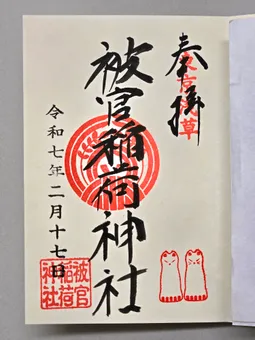 奉拝
東京浅草
被官稲荷神社
令和七年二月十七日
被官
稲荷
神社